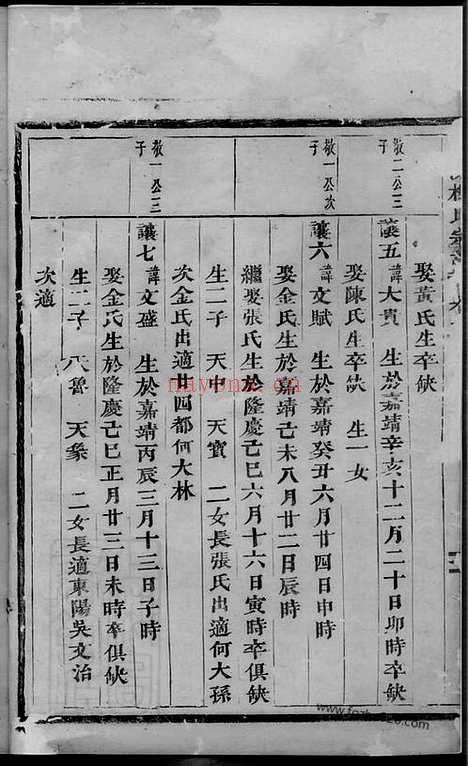 娶黃氏生卒缺
敬二公三子
讓五 諱大貴 生於嘉靖辛亥十二月二十日卯時卒缺
娶陳氏生卒缺 生一女
敬一公次子
讓六 諱文賦 生於嘉靖癸丑六月廿四日申時
娶金氏生於嘉靖己未八月廿二日辰時
繼娶張氏生於隆慶己巳六月十六日寅時卒俱缺
生二子 天申 天寶 二女長張氏出適何大孫
次金氏出適廿四都何大林
敬一公三子
讓七 諱文盛 生於嘉靖丙辰三月十三日子時
娶金氏生於隆慶己巳正月廿三日未時卒俱缺
生二子 天魯 天參 二女長適東陽吳文治
次適
三